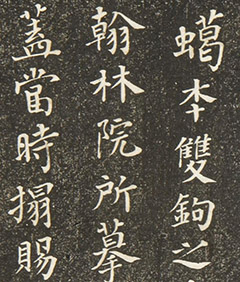 蠍本雙鉤之
翰林院所摹
蓋當時搨賜